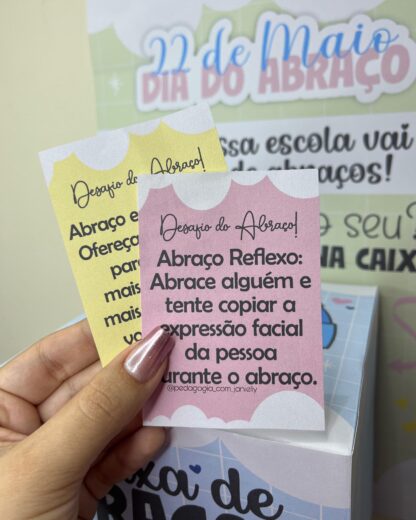 22 de Maio
DIA DO ABRAÇO
ssa escola vai
de abraços!
seu?
NA CAIX
Desafio do Abraço!
Abraço e
Ofereça
par
mais
mais
vo
Desafio do Abraço!
Abraço Reflexo:
Abrace alguém e
tente copiar a
expressão facial
da pessoa
durante o abraço.
@pedagogia_com_jarvelly
ixa de